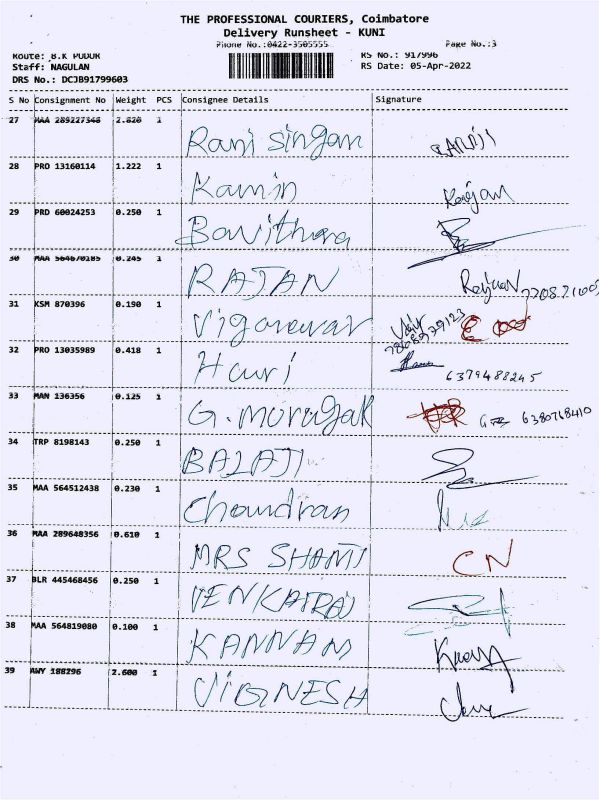 THE PROFESSIONAL COURIERS, Coimbatore
Delivery Runsheet - KUNI
Phone No.:0422-3505555 Page No.:3
Route: B.K PUDUR RS No.: 917996
Staff: NAGULAN RS Date: 05-Apr-2022
DRS No.: DCJB91799603
S No Consignment No Weight PCS Consignee Details Signature
27 MAA 289227348 2.820 1 Rani Singam
28 PRO 13160114 1.222 1 Kamin Rajan
29 PRD 60024253 0.250 1 Bavithura
30 MAA 564670185 0.245 1 RAJAN Rajan
31 KSM 870396 0.190 1
32 PRO 13035989 0.418 1 Hauri 6379488245
33 MAN 136356 0.125 1 G. morugak 6380768410
34 TRP 8198143 0.250 1 BALAJI
35 MAA 564512438 0.230 1 Chandran
36 MAA 289648356 0.610 1 MRS SHANTI CN
37 BLR 445468456 0.250 1 VENKATRAJ
38 MAA 564819080 0.100 1 KANNAN
39 AWY 188296 2.600 1 VIGNESH